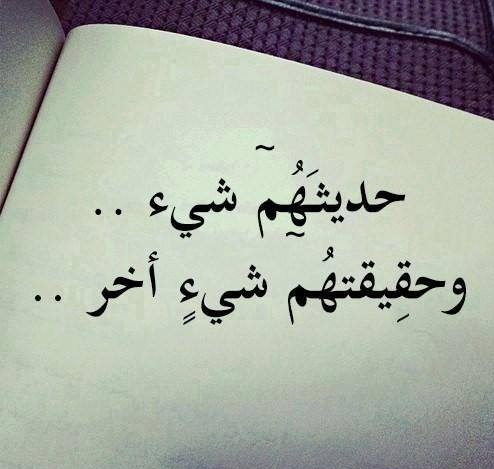 حديثـَهُِم ̃ شيء ..
وحقِيقتهُم ̃ شيءٍ أخر ..